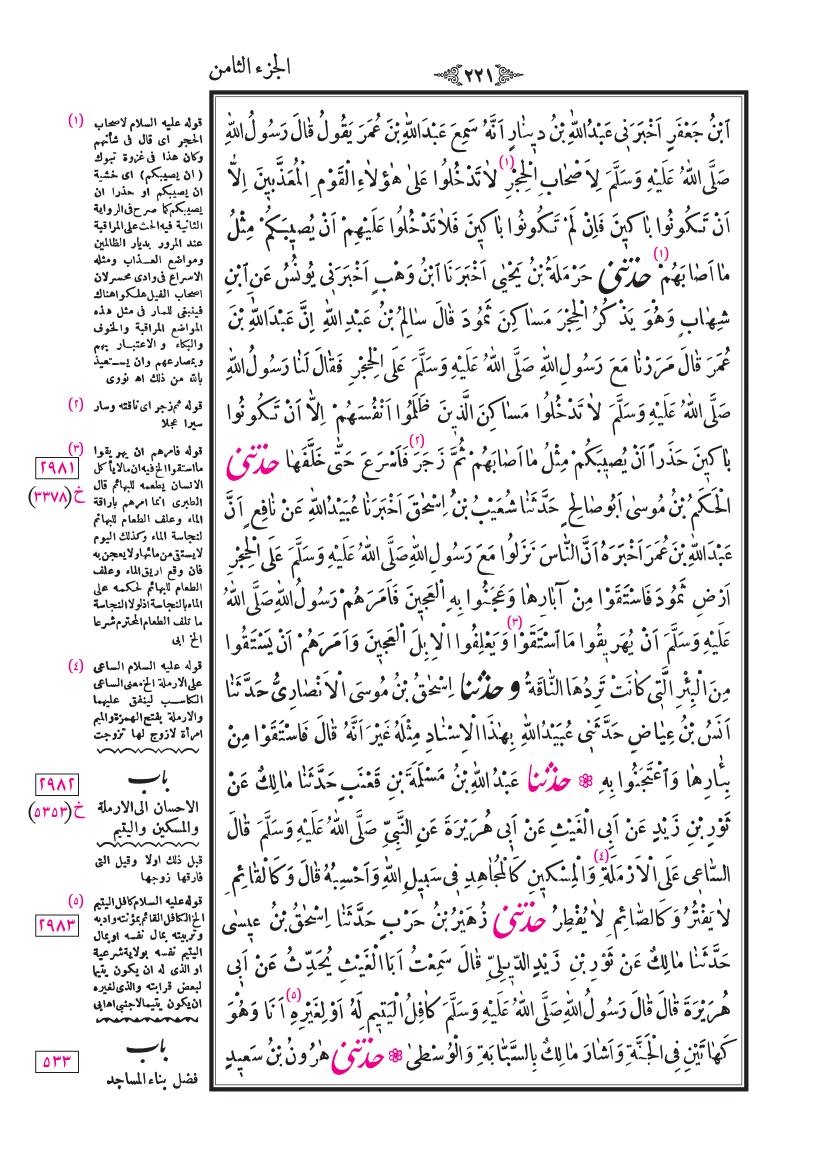 الجزء الثامن
٢٢١
ابْنُ جَعْفَرٍ اَخْبَرَنِي عَبْدُاللّٰهِ بْنُ دِينَارٍ اَنَّهُ سَمِعَ عَبْدَاللّٰهِ بْنَ عُمَرَ يَقُولُ قَالَ رَسُولُ اللّٰهِ
صَلَّى اللّٰهُ عَلَيْهِ وَسَلَّمَ لِاَصْحَابِ الْحِجْرِ (١) لَا تَدْخُلُوا عَلَى هٰؤُلَاءِ الْقَوْمِ الْمُعَذَّبِينَ اِلَّا
اَنْ تَكُونُوا بَاكِينَ فَاِنْ لَمْ تَكُونُوا بَاكِينَ فَلَا تَدْخُلُوا عَلَيْهِمْ اَنْ يُصِيبَكُمْ مِثْلُ
مَا اَصَابَهُمْ (١) حَدَّثَنِي حَرْمَلَةُ بْنُ يَحْيٰى اَخْبَرَنَا ابْنُ وَهْبٍ اَخْبَرَنِي يُونُسُ عَنِ ابْنِ
شِهَابٍ وَهُوَ يَذْكُرُ الْحِجْرَ مَسَاكِنَ ثَمُودَ قَالَ سَالِمُ بْنُ عَبْدِ اللّٰهِ اِنَّ عَبْدَاللّٰهِ بْنَ
عُمَرَ قَالَ مَرَرْنَا مَعَ رَسُولِ اللّٰهِ صَلَّى اللّٰهُ عَلَيْهِ وَسَلَّمَ عَلَى الْحِجْرِ فَقَالَ لَنَا رَسُولُ اللّٰهِ
صَلَّى اللّٰهُ عَلَيْهِ وَسَلَّمَ لَا تَدْخُلُوا مَسَاكِنَ الَّذِينَ ظَلَمُوا اَنْفُسَهُمْ اِلَّا اَنْ تَكُونُوا
بَاكِينَ حَذَراً اَنْ يُصِيبَكُمْ مِثْلُ مَا اَصَابَهُمْ ثُمَّ زَجَرَ (٢) فَاَسْرَعَ حَتَّى خَلَّفَهَا حَدَّثَنِي
الْحَكَمُ بْنُ مُوسٰى اَبُو صَالِحٍ حَدَّثَنَا شُعَيْبُ بْنُ اِسْحٰقَ اَخْبَرَنَا عُبَيْدُ اللّٰهِ عَنْ نَافِعٍ اَنَّ
عَبْدَاللّٰهِ بْنَ عُمَرَ اَخْبَرَهُ اَنَّ النَّاسَ نَزَلُوا مَعَ رَسُولِ اللّٰهِ صَلَّى اللّٰهُ عَلَيْهِ وَسَلَّمَ عَلَى الْحِجْرِ
اَرْضِ ثَمُودَ فَاسْتَقَوْا مِنْ آبَارِهَا وَعَجَنُوا بِهِ الْعَجِينَ فَاَمَرَهُمْ رَسُولُ اللّٰهِ صَلَّى اللّٰهُ
عَلَيْهِ وَسَلَّمَ اَنْ يُهَرِيقُوا مَا اسْتَقَوْا (٣) وَيَعْلِفُوا الْاِبِلَ الْعَجِينَ وَاَمَرَهُمْ اَنْ يَسْتَقُوا
مِنَ الْبِئْرِ الَّتِي كَانَتْ تَرِدُهَا النَّاقَةُ وَحَدَّثَنَا اِسْحٰقُ بْنُ مُوسَى الْاَنْصَارِيُّ حَدَّثَنَا
اَنَسُ بْنُ عِيَاضٍ حَدَّثَنِي عُبَيْدُ اللّٰهِ بِهٰذَا الْاِسْنَادِ مِثْلَهُ غَيْرَ اَنَّهُ قَالَ فَاسْتَقَوْا مِنْ
بِئَارِهَا وَاعْتَجَنُوا بِهِ ❁ حَدَّثَنَا عَبْدُ اللّٰهِ بْنُ مَسْلَمَةَ بْنِ قَعْنَبٍ حَدَّثَنَا مَالِكٌ عَنْ
ثَوْرِ بْنِ زَيْدٍ عَنْ اَبِي الْغَيْثِ عَنْ اَبِي هُرَيْرَةَ عَنِ النَّبِيِّ صَلَّى اللّٰهُ عَلَيْهِ وَسَلَّمَ قَالَ
السَّاعِي عَلَى الْاَرْمَلَةِ (٤) وَالْمِسْكِينِ كَالْمُجَاهِدِ فِي سَبِيلِ اللّٰهِ وَاَحْسِبُهُ قَالَ وَكَالْقَائِمِ
لَا يَفْتُرُ وَكَالصَّائِمِ لَا يُفْطِرُ حَدَّثَنِي زُهَيْرُ بْنُ حَرْبٍ حَدَّثَنَا اِسْحٰقُ بْنُ عِيسٰى
حَدَّثَنَا مَالِكٌ عَنْ ثَوْرِ بْنِ زَيْدٍ الدِّيلِيِّ قَالَ سَمِعْتُ اَبَا الْغَيْثِ يُحَدِّثُ عَنْ اَبِي
هُرَيْرَةَ قَالَ قَالَ رَسُولُ اللّٰهِ صَلَّى اللّٰهُ عَلَيْهِ وَسَلَّمَ كَافِلُ الْيَتِيمِ لَهُ اَوْ لِغَيْرِهِ (٥) اَنَا وَهُوَ
كَهَاتَيْنِ فِي الْجَنَّةِ وَاَشَارَ مَالِكٌ بِالسَّبَّابَةِ وَالْوُسْطٰى ❁ حَدَّثَنِي هٰرُونُ بْنُ سَعِيدٍ
(١) قوله عليه السلام لاصحاب
الحجر اى قال فى شأنهم
وكان هذا فى غزوة تبوك
( ان يصيبكم) اى خشية
ان يصيبكم او حذرا ان
يصيبكم كما صرح فى الرواية
الثانية فيه الحث على المراقبة
عند المرور بديار الظالمين
ومواضع العذاب ومثله
الاسراع فى وادى محسر لان
اصحاب الفيل هلكوا هناك
فينبغى للمار فى مثل هذه
المواضع المراقبة والخوف
والبكاء و الاعتبار بهم
وبمصارعهم وان يستعيذ
بالله من ذلك اه نووى
(٢) قوله ثم زجر اى ناقته وسار
سيرا عجلا
(٣) قوله فامرهم ان يهريقوا
ما استقوا الخ فيه ان مالا يأكل
الانسان يطعمه للبهائم قال
الطبرى انما امرهم باراقة
الماء وعلف الطعام للبهائم
لنجاسة الماء وكذلك اليوم
لا يستقى من مائها ولا يعجن به
فان وقع اريق الماء وعلف
الطعام للبهائم لحكمه على
الماء بالنجاسة اذ لولا النجاسة
ما تلف الطعام المحترم شرعا
الخ ابى
(٤) قوله عليه السلام الساعى
على الارملة الخ معنى الساعى
الكاسب لينفق عليهما
والارملة بفتح الهمزة والميم
امرأة لازوج لها تزوجت
باب
الاحسان الى الارملة
والمسكين واليتيم
قبل ذلك اولا وقيل التى
فارقها زوجها
(٥) قوله عليه السلام كافل اليتيم
الخ الكافل القائم بمؤنته وادبه
وتربيته بمال نفسه او بمال
اليتيم نفسه بولاية شرعية
او الذى له ان يكون يتيما
لبعض قرابته والذى لغيره
ان يكون يتيما لاجنبى اهابى
باب
فضل بناء المساجد
٢٩٨١
خ (٣٣٧٨)
٢٩٨٢
خ (٥٣٥٣)
٢٩٨٣
٥٣٣